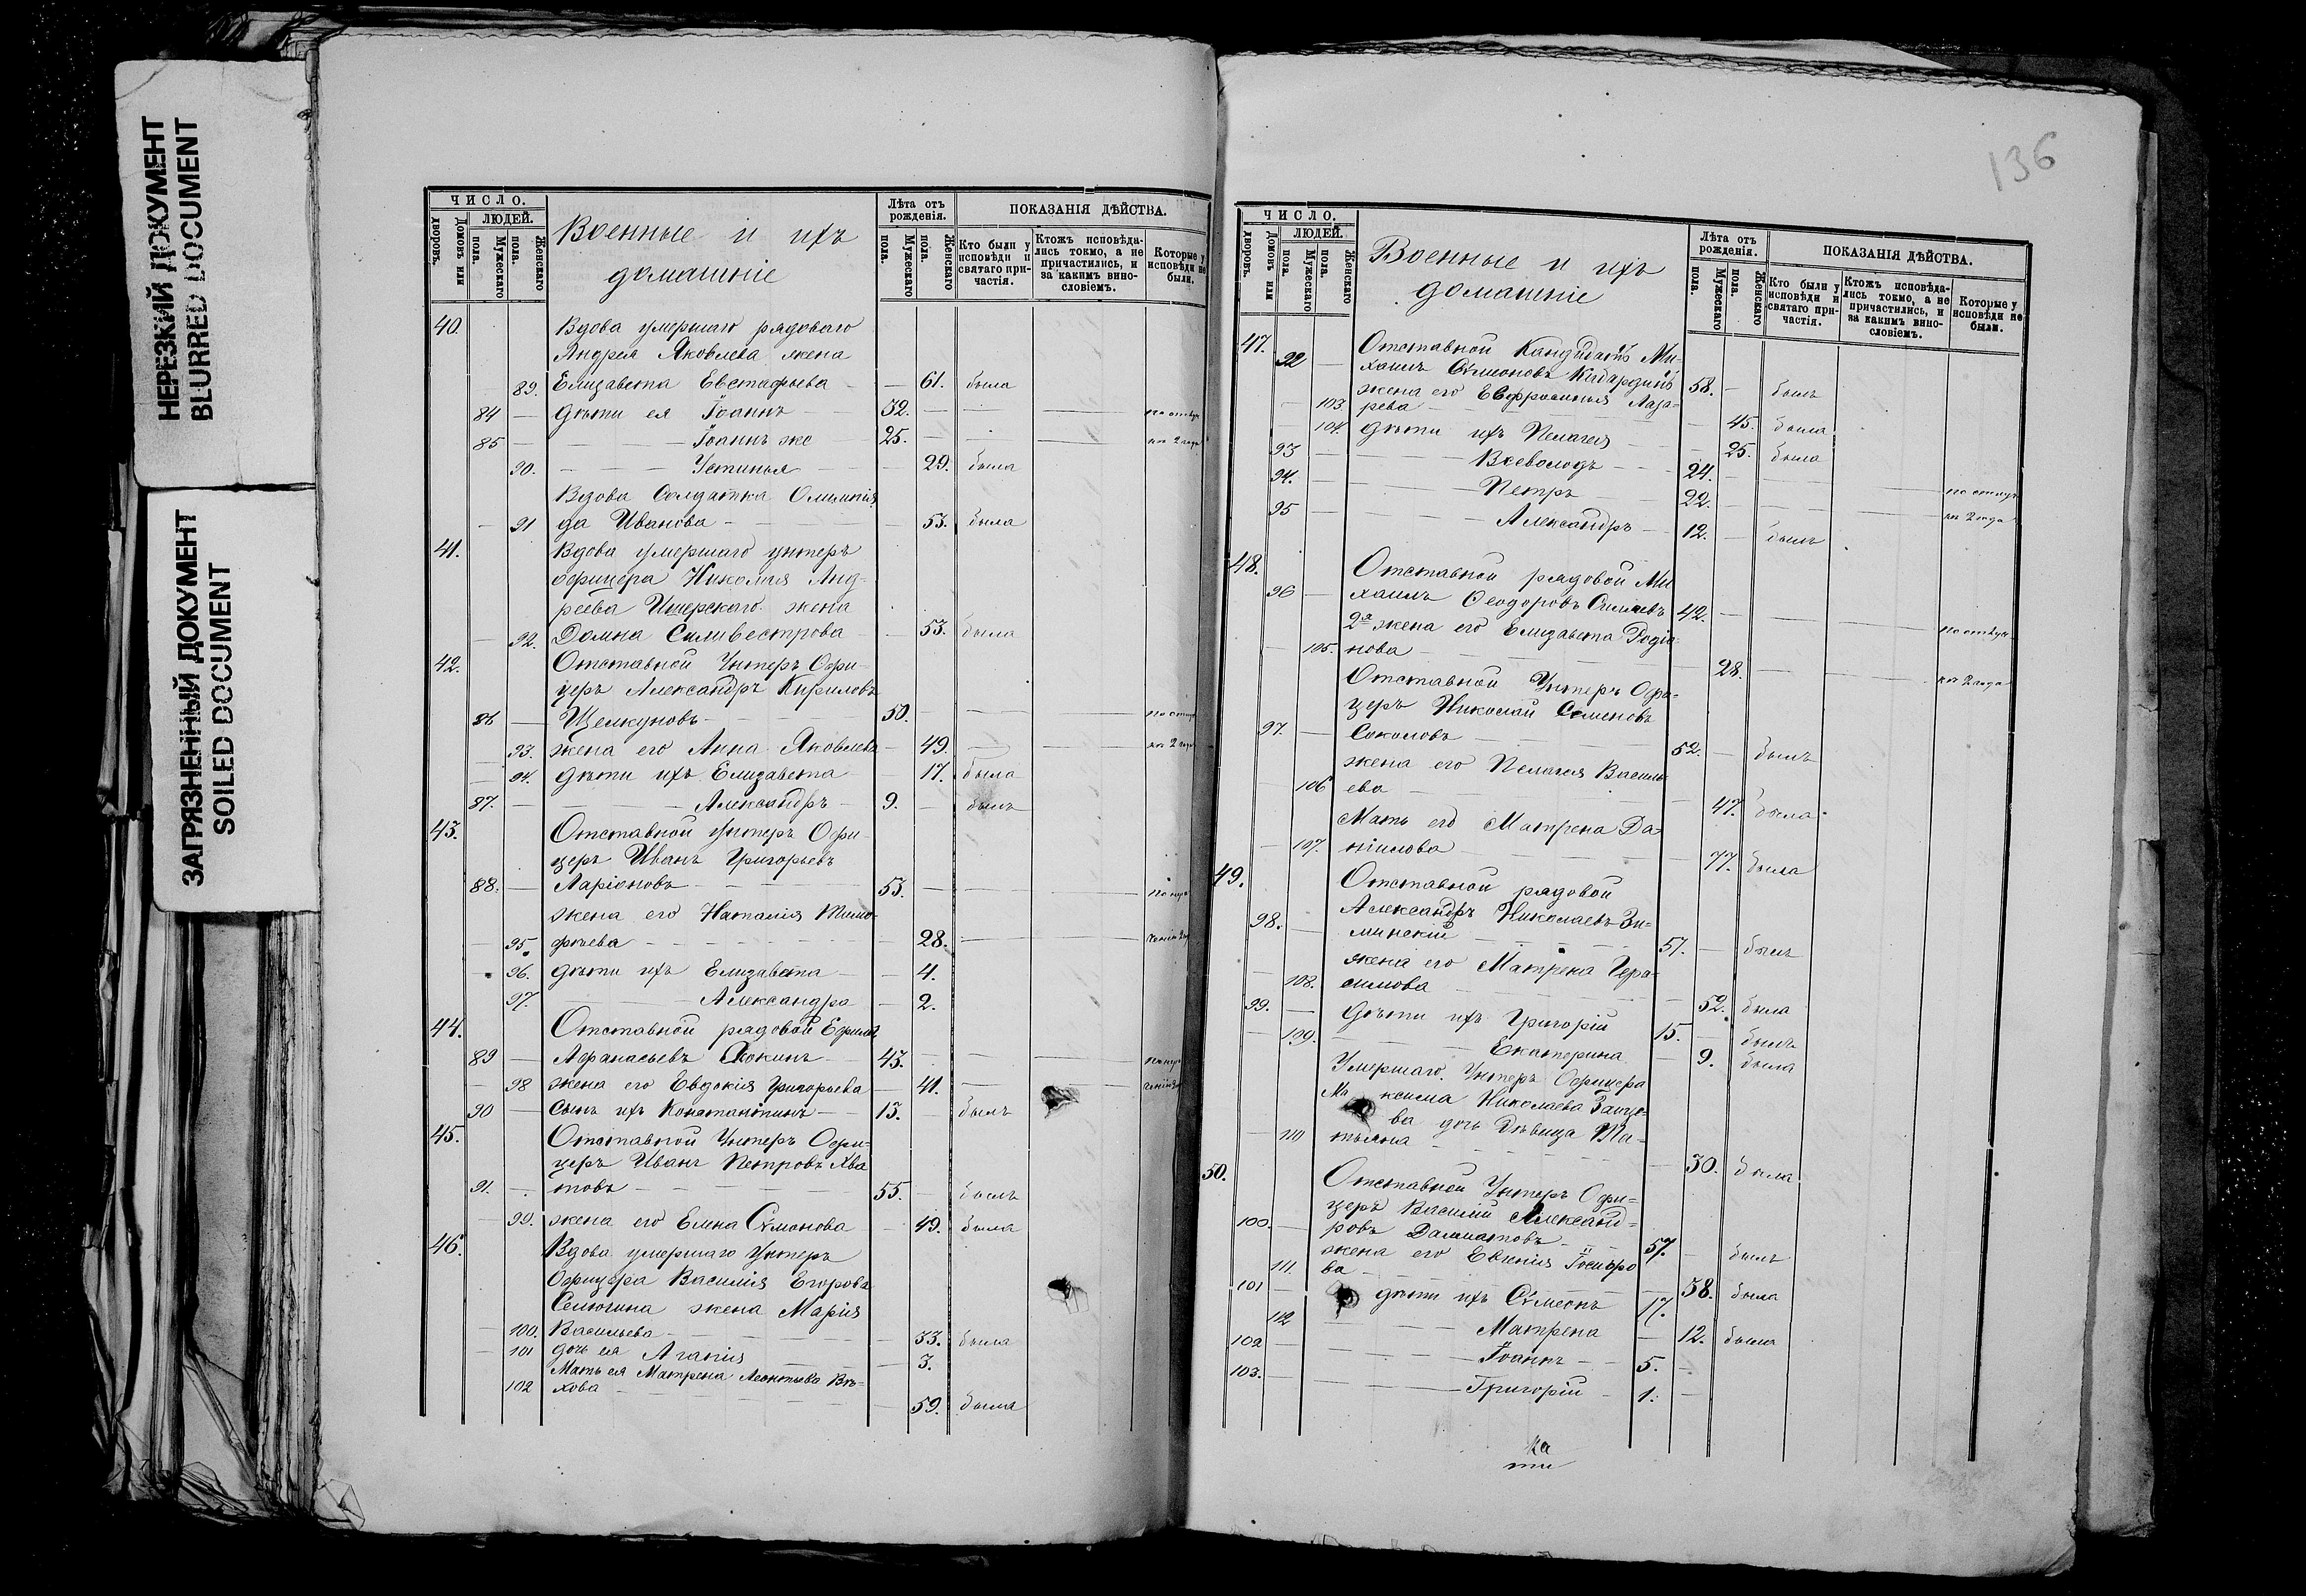 НЕРЕЗКИЙ ДОКУМЕНТ
BLURRED DOCUMENT
ЗАГРЯЗНЕННЫЙ ДОКУМЕНТ
SOILED DOCUMENT
ЧИСЛО.
ЛЮДЕЙ.
Домовъ или дворовъ.
Мужескаго пола.
Женскаго пола.
Военные и ихъ
домашніе
Лѣта отъ рожденія.
Мужескаго пола.
Женскаго пола.
ПОКАЗАНІЯ ДѢЙСТВА.
Кто были у исповѣди и святаго причастія.
Ктожъ исповѣдались токмо, а не причастились, и за какимъ винословіемъ.
Которые у исповѣди не были.
40. Вдова умершаго рядоваго
Андрея Яковлева жена
89. Елизавета Евстафьева 61. была
84 дѣти ея Іоаннъ 32.
85 Іоаннъ же 25.
90. Устинья 29. была
Вдова Солдатка Олимпія
91 да Иванова 53. была
41. Вдова умершаго унтеръ
офицера Николая Анд-
реева жена
92. Домна Силивестрова 53. была
42. Отставной Унтеръ Офи-
церъ Александръ Кириловъ
86 Щелкуновъ 50.
93. жена его Анна Яковлева 49.
94. дѣти ихъ Елизавета 17. была
87. Александръ 9. былъ
43. Отставной унтеръ Офи-
церъ Иванъ Григорьевъ
88. Ларіоновъ 53.
жена его Наталія Тимо-
95. фѣева 28.
96. дѣти ихъ Елизавета 4.
97. Александра 2.
44. Отставной рядовой Ефимъ
89 Афанасьевъ 43.
98 жена его Евдокія Григорьева 41.
90 сынъ ихъ Константинъ 13. былъ
45. Отставной Унтеръ Офи-
церъ Иванъ Петровъ Хва
91. товъ 55. былъ
99. жена его Елена Сѵмонова 49. была
46. Вдова умершаго Унтеръ
Офицера Василія Егорова
Селюгина жена Марія
100. Васильева 33. была
101 дочь ея Агапія 3.
Мать ея Матрена Леонтьева
102 хова 59. была
136
ЧИСЛО.
ЛЮДЕЙ.
Домовъ или дворовъ.
Мужескаго пола.
Женскаго пола.
Военные и ихъ
домашніе
Лѣта отъ рожденія.
Мужескаго пола.
Женскаго пола.
ПОКАЗАНІЯ ДѢЙСТВА.
Кто были у исповѣди и святаго причастія.
Ктожъ исповѣдались токмо, а не причастились, и за какимъ винословіемъ.
Которые у исповѣди не были.
47. Отставной Кандидатъ Ми-
92 хаилъ Сѵмеоновъ 58. былъ
жена его Евфросинья Лаза-
103. рева 45. была
104. дѣти ихъ Пелагея 25. была
93 Всеволодъ 24.
94. Петръ 22.
95 Александръ 12. былъ
48. Отставной рядовой Ми
96 хаилъ Ѳеодоровъ 42.
2я жена его Елизавета Родіо-
105. нова 28.
Отставной Унтеръ Офи-
церъ Николай Семеновъ
97. Соколовъ 52. былъ
жена его Пелагея Василь
106 ева 47. была
Мать его Матрена Да-
107. нилова 77. была
49. Отставной рядовой
Александръ Николаевъ Зи-
98. минскій 57. былъ
жена его Матрена Гера-
108. симова 52. была
99. дѣти ихъ Григорій 15. былъ
109. Екатерина 9. была
Умершаго Унтеръ Офицера
Максима Николаева
ва дочь Дѣвица Та-
110 тьяна 30. была
50. Отставной Унтеръ Офи-
церъ Василій Александ-
100. ровъ Далматовъ 57. былъ
жена его Евгенія
111. ва 58. была
101 дѣти ихъ Сѵмеонъ 17.
112 Матрена 12. была
102 Іоаннъ 5.
103. Григорій 1.